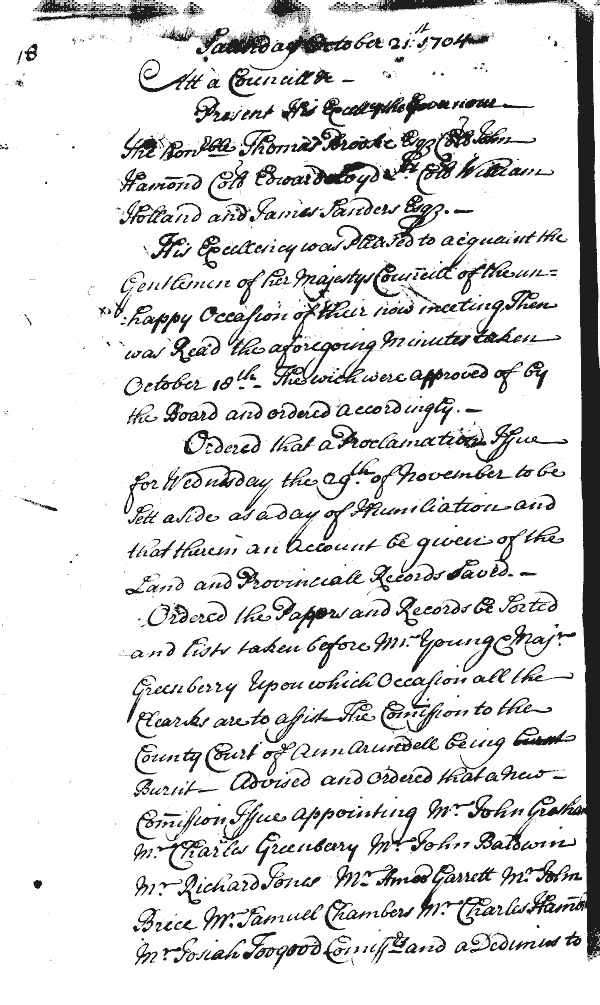 18
Saturday October 21.st 1704
Att a Councill &c –
Present His Excellcy the Governour
The Honble Thomas Brooke Esqr Coll John
Hamond Coll Edward Loyd Coll William
Holland and James Sanders Esqr. –
His Excellency was Pleased to acquaint the
Gentlemen of her Majestys Councill of the un=
=happy Occasion of their now meeting Then
was Read the aforegoing Minutes taken
October 18th – The wich were approved of by
the Board and ordered accordingly. –
Ordered that a Proclamation Issue
for Wednesday the 29th of November to be
sett aside as a day of Humiliation and
that therein an account be given of the
Land and Provinciall Records Saved. –
Ordered the Papers and Records be sorted
and lists taken before Mr Young Majr
Greenberry Upon which Occasion all the
Clearks are to assist The Comission to the
County Court of Ann Arundell being burnt
Burnt – Advised and ordered that a new –
Comission Issue appointing Mr John Graham
Mr Charles Greenberry Mr John Baldwin
Mr Richard Jones Mr Amos Garrett Mr John
Brice Mr Samuel Chambers Mr Charles Hamond
Mr Josiah Toogood Comissrs and a Dedimus to